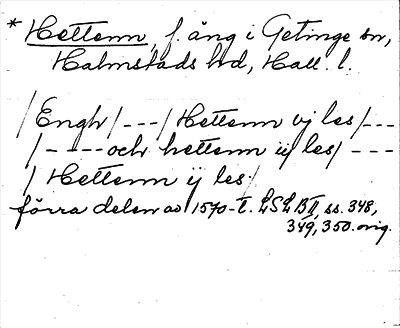 * Hettenn, f. äng i Getinge sn,
Halmstads hd, Hall. l.
/Engh/---/Hettenn vj les/---
/----och hettenn ii les/---
/Hettenn ij les/
förra delen av 1570-t. LSLB II, ss. 348,
349, 350. orig.